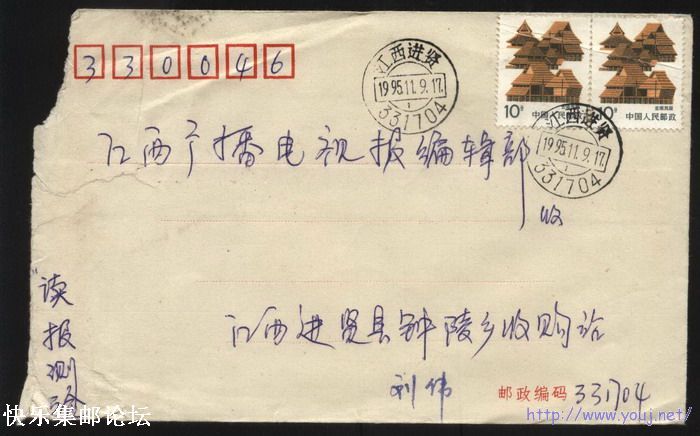 330046
江西进贤
1995.11.9.17.
1
331704
10分
中国人民邮政
10分
中国人民邮政
江西进贤
1995.11.9.17.
1
331704
江西广播电视报编辑部
收
"读报测验
江西进贤县钟陵乡收购站
刘伟
邮政编码 331704
快乐集邮论坛
http://www.youj.net/